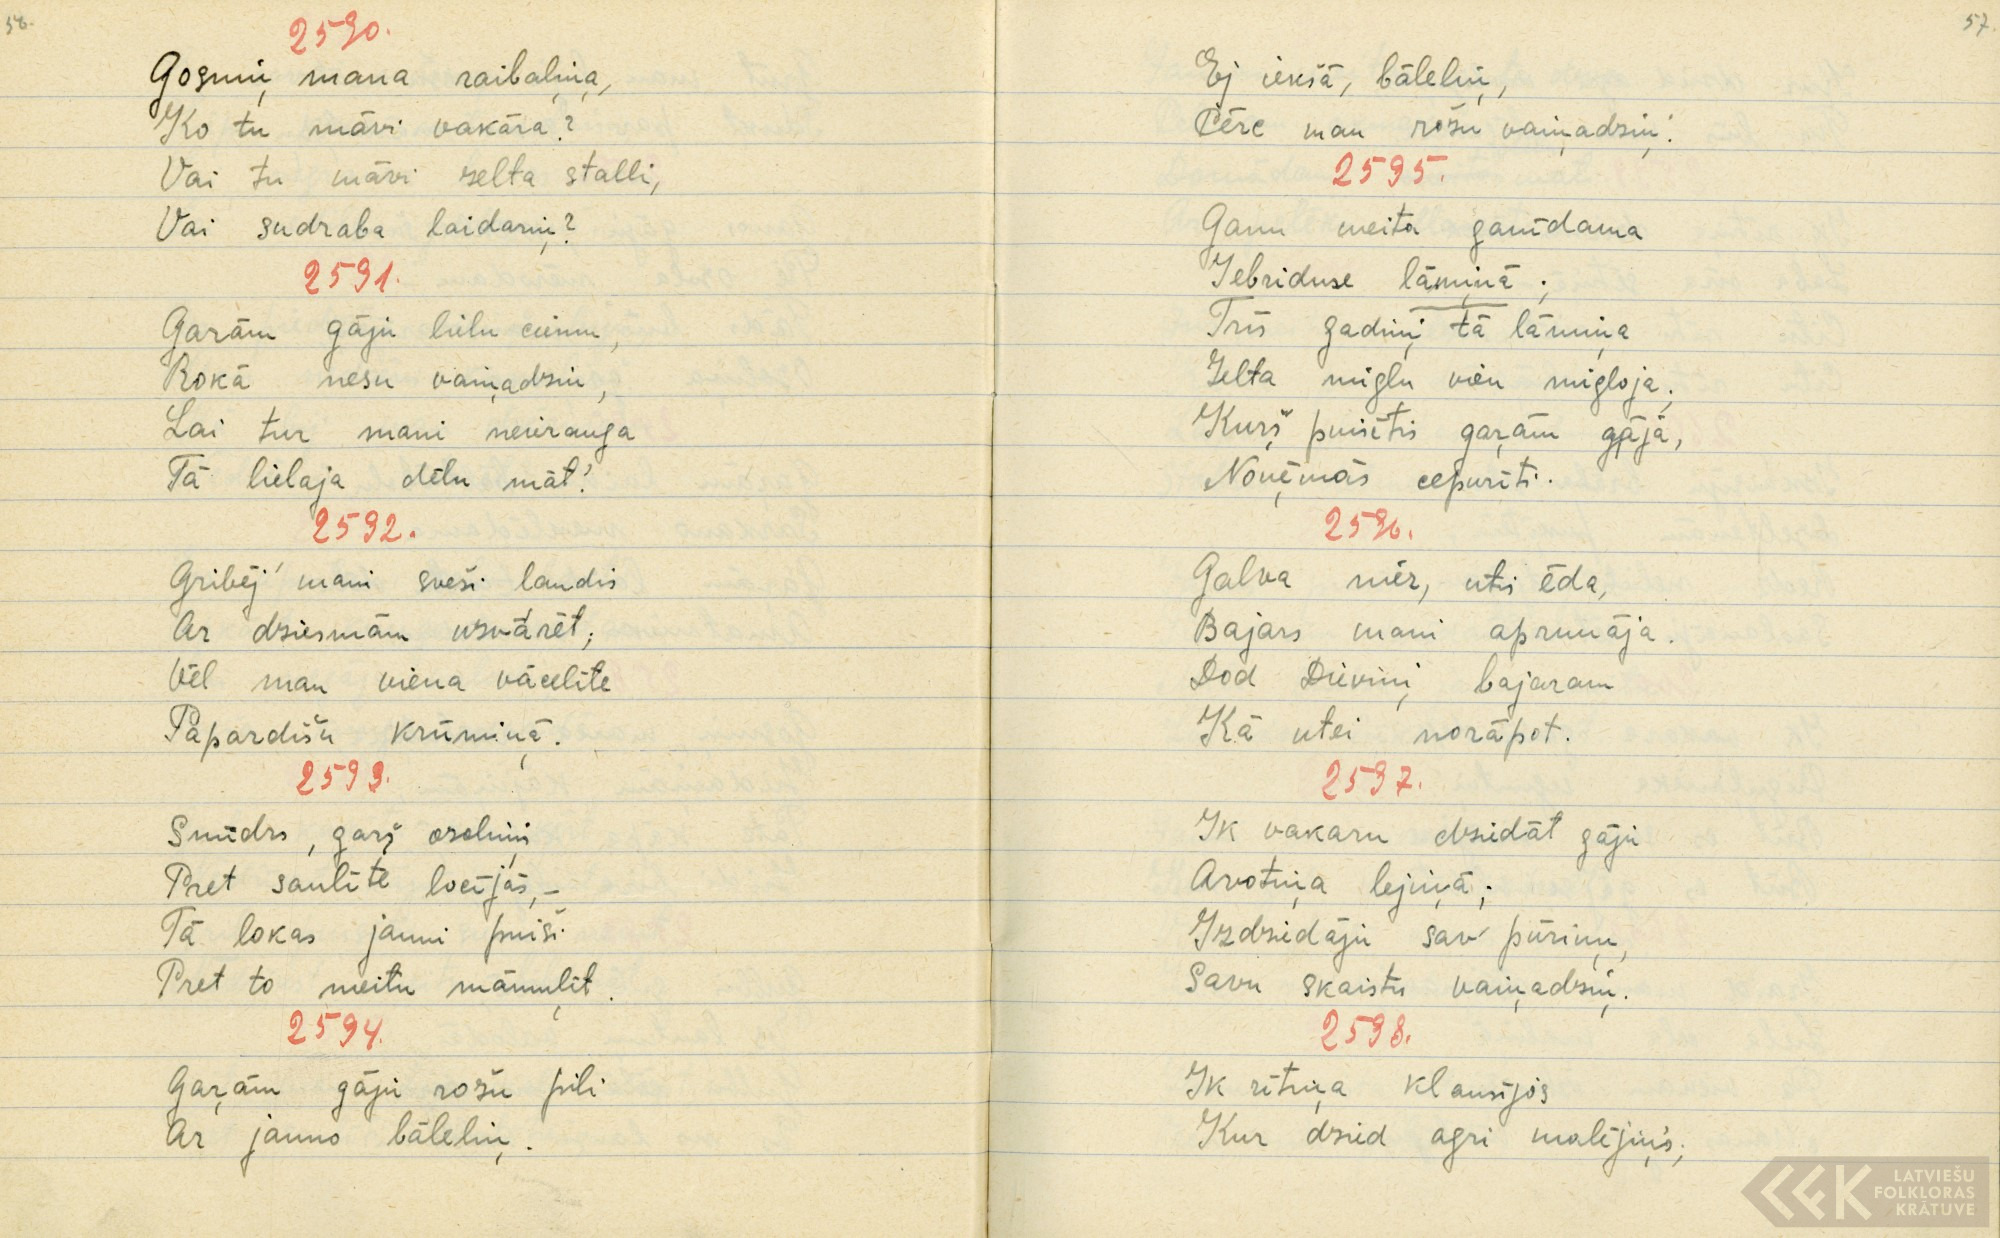 56.
2590.
Gosniņ, mana raibaliņa,
Ko tu māvi vakāra?
Vai tu māvi zelta stalli,
Vai sudraba laidariņ?
2591.
Garām gāju lielu ciemu,
Rokā nesu vaiņadziņ,
Lai tur mani neierauga
Tā lielaja dēlu māt!
2592.
Gribēj' mani sveši laudis
Ar dziesmām uzvārēt;
Vēl man viena vācelīte
Papardīšu krūmiņā.
2593.
Smīdrs, gaŗš ozoliņi
Pret saulīte locījās, –
Tā lokas jauni puiši
Pret to meitu māmuļīt.
2594.
Gaŗām gāju rožu pili
Ar jauno bāleliņ.
57.
Ej iekšā, bāleliņ,
Pērc man rožu vaiņadziņ!
2595.
Ganu meita ganīdama
Iebriduse lāmiņā;
Trīs gadiņi tā lāmiņa
Zelta miglu vien migloja;
Kuŗš puisītis gaŗām gājā,
Noņēmās cepurīti.
2596.
Galva niēz, utis ēda,
Bajars mani aprunāja.
Dod Dieviņi bajaram
Kā utei norāpot.
2597.
Ik vakaru dziedāt gāju
Avotiņa lejiņā;
Izdziedāju sav' pūriņu,
Savu skaistu vaiņadziņ.
2598.
Ik rītiņa klausījos
Kur dzied agri malējiņ's;
LATVIEŠU
FOLKLORAS
KRĀTUVE